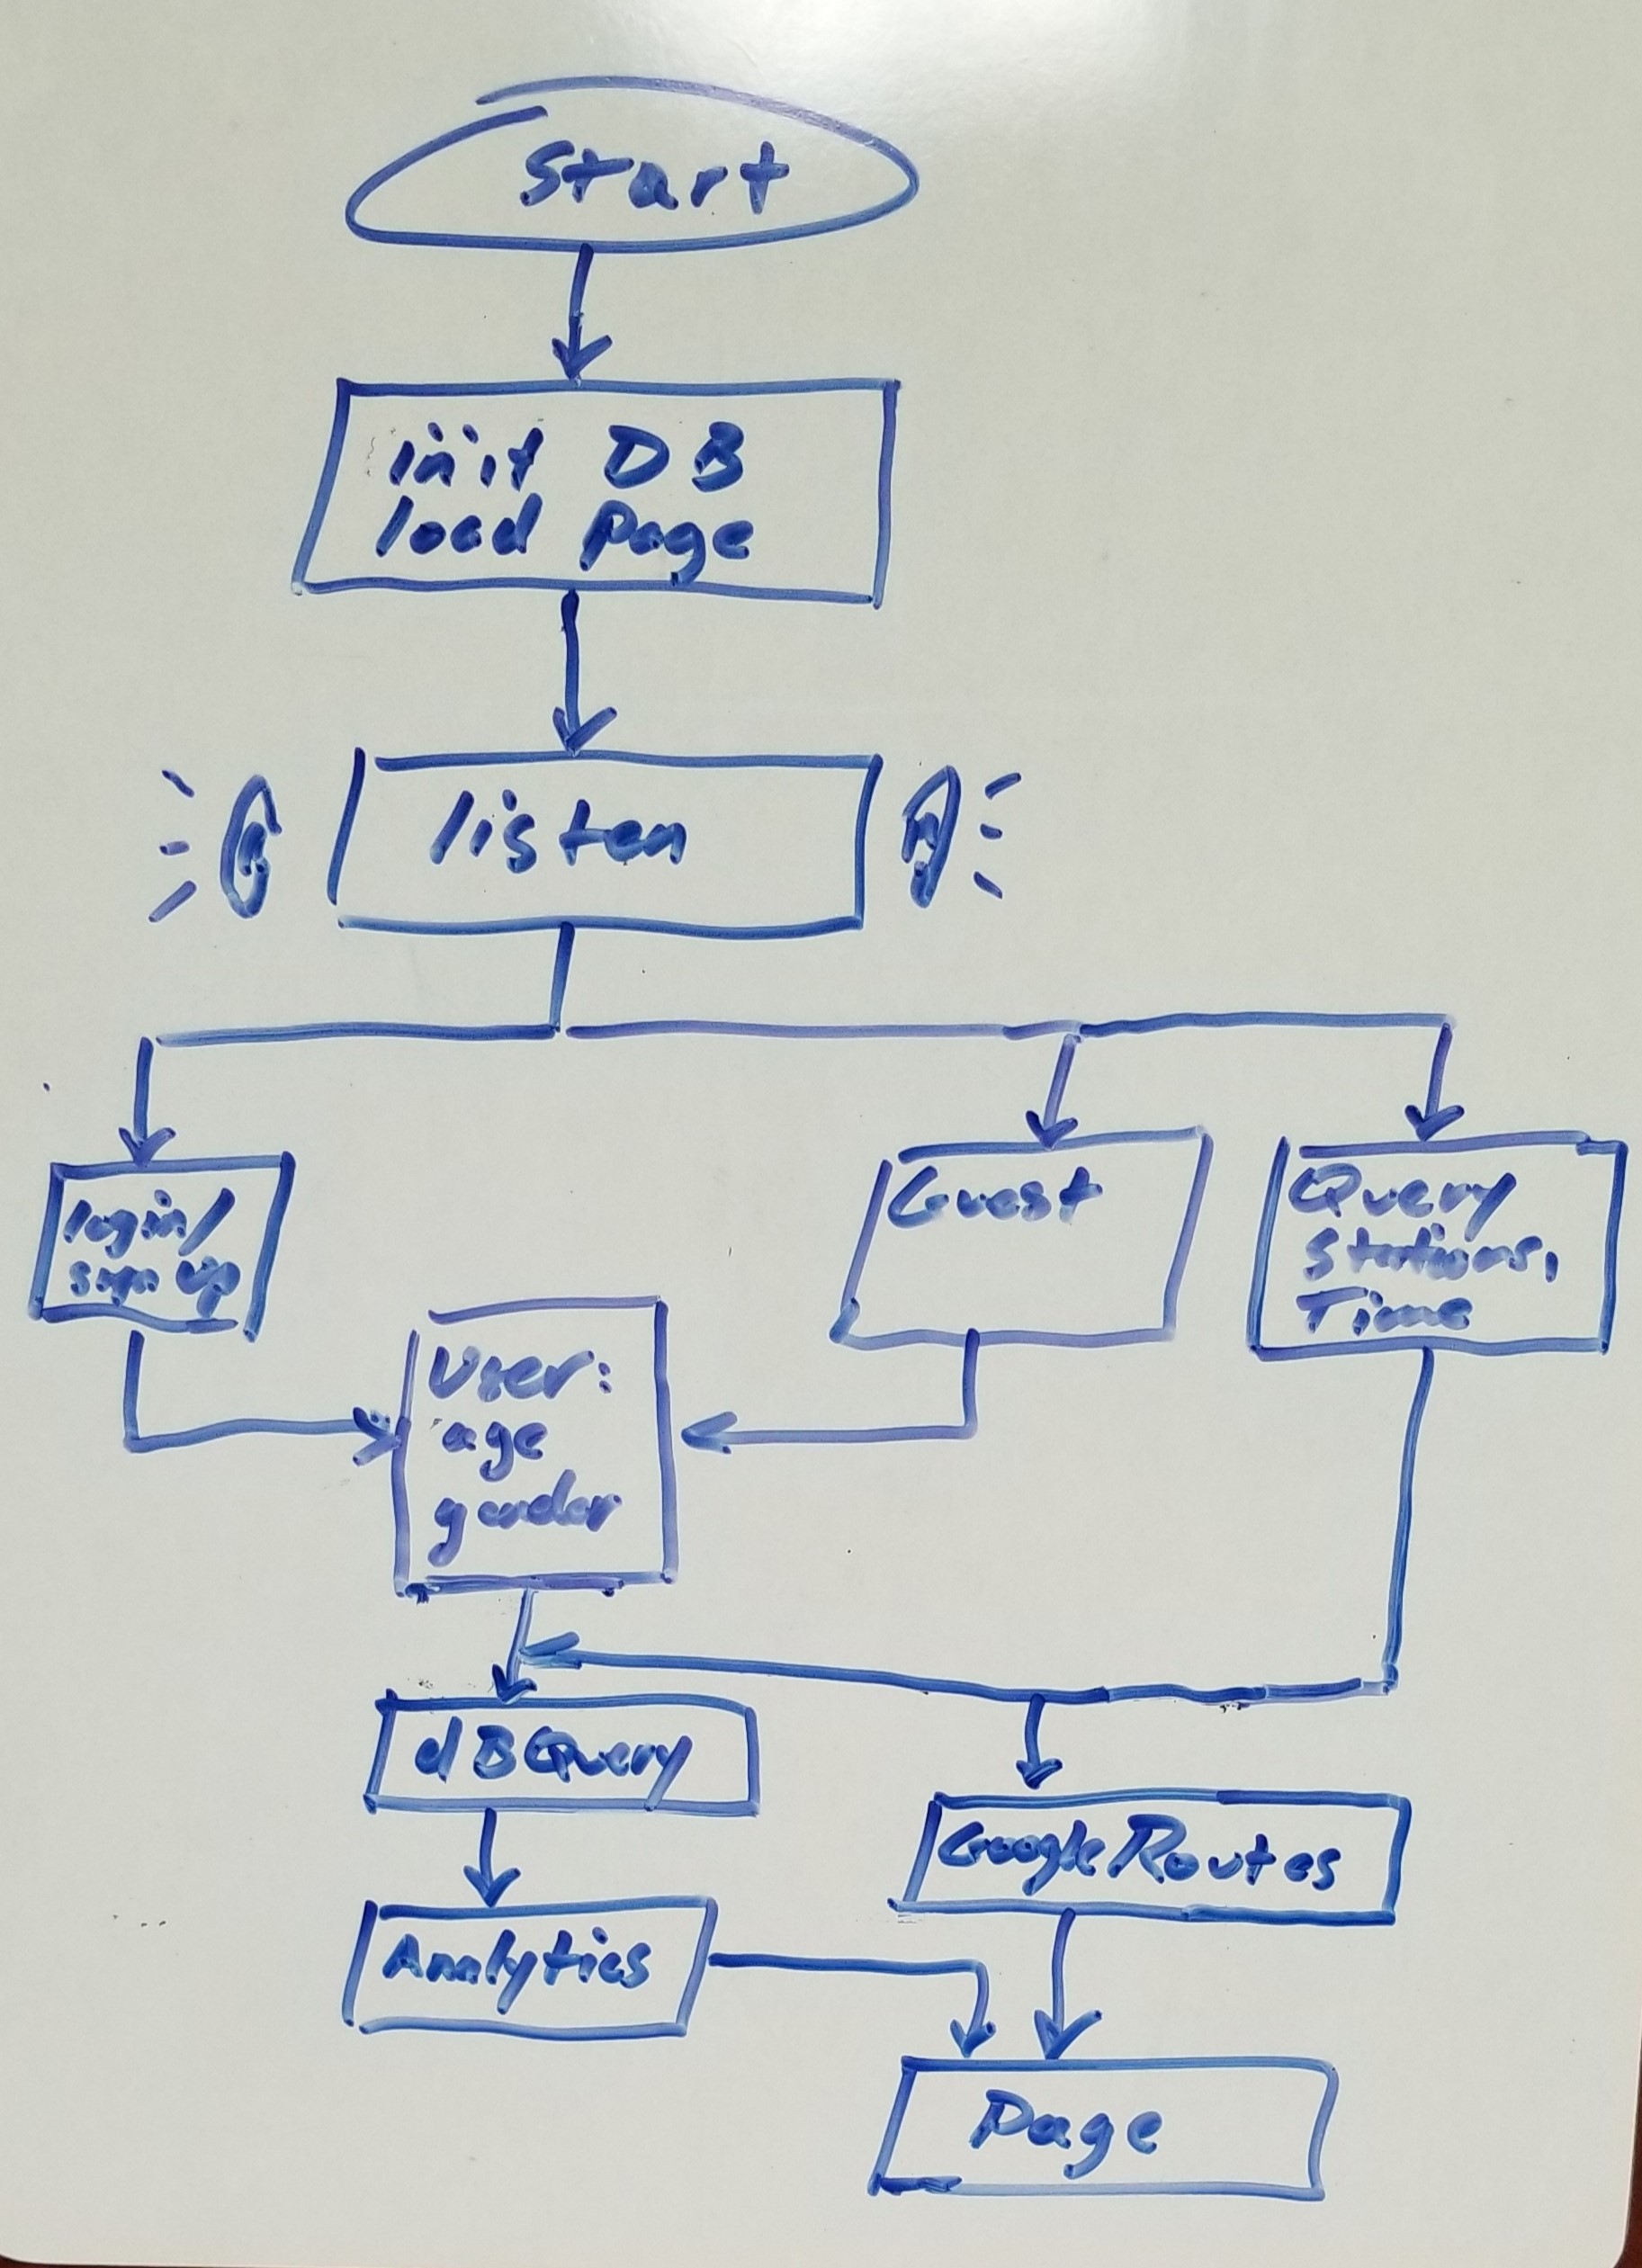 Start
init DB
load page
listen
login/
sign up
Guest
Query
Stations,
Time
User:
age
gender
dBQuery
GoogleRoutes
Analytics
Page